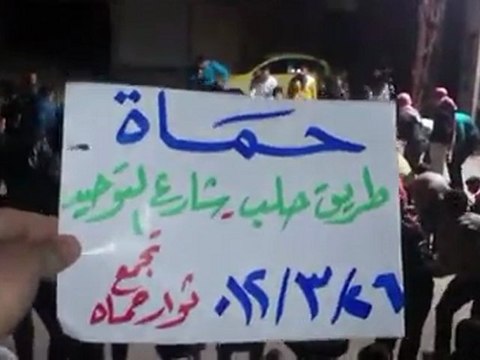 حمَاة
طريق حلب - شارع التوحيد
٠١٢/٣/٢٦
تجمع
ثوار حماه